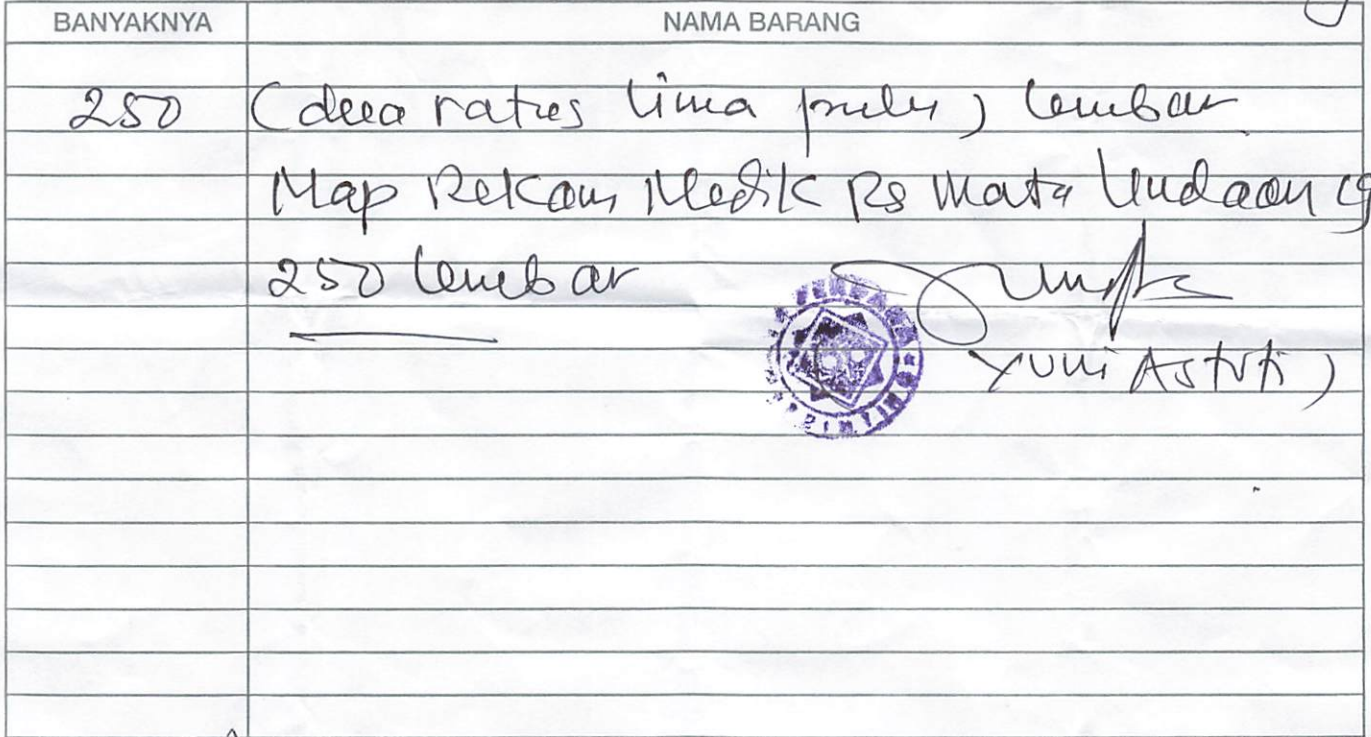 BANYAKNYA NAMA BARANG
250 (dua ratus lima puluh) lembar
Map Rekam Medik RS Mata Undaan
250 lembar
Yuni Astuti)